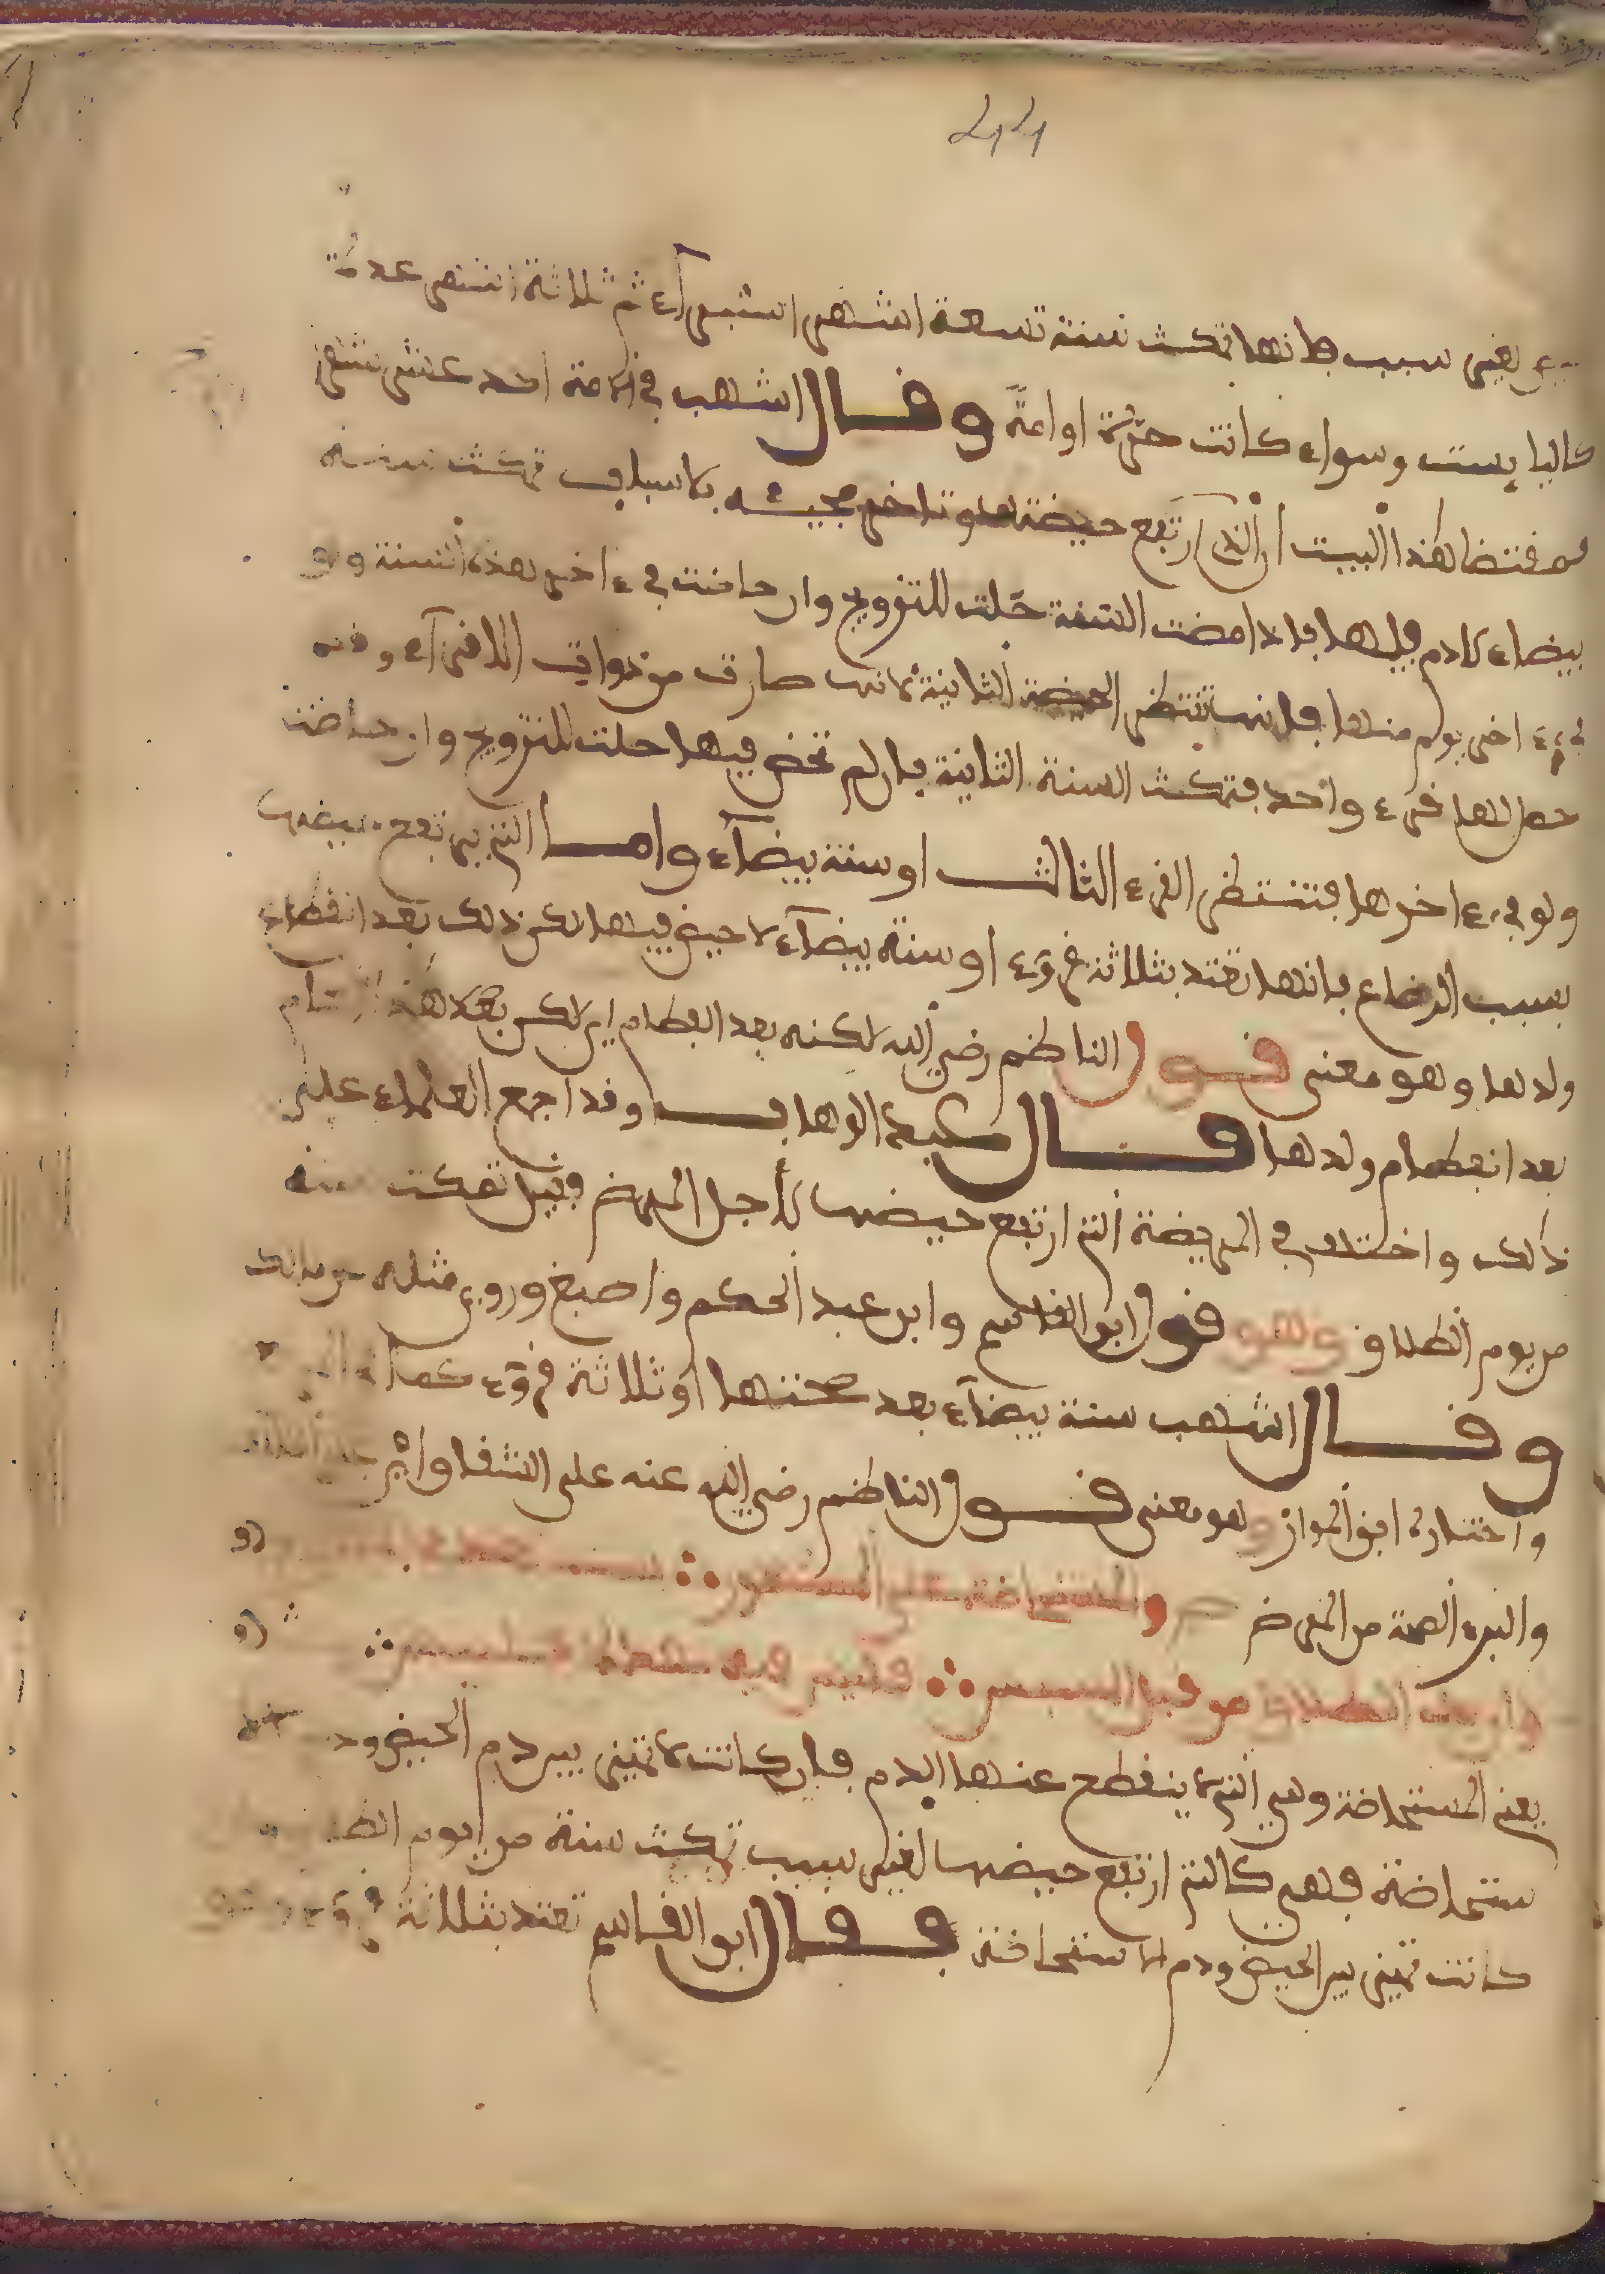 44
لغير سبب فإنها تمكث سنة تسعة أشهر استبراء ثم ثلاثة أشهر عدة
كاليايست وسواء كانت حرة او امة وقال اشهب في الامة احد عشر شهرا
فمقتضا هذا البيت ان التي ارتفع حيضتها وتاخر بلا سبب تمكث سنة
بيضاء لا دم فيها فاذا مضت السنة حلت للتزويج وان حاضت في ءاخر هذه السنة ولو
في ءاخر يوم منها فانها تنتظر الحيضة الثانية لانها صارت من ذوات الاقراء وقد
حصل لها قرء واحد فتمكث السنة الثانية فان لم تحض فيها حلت للتزويج وان حاضت
ولو في ءاخرها فتنتظر القرء الثالث او سنة بيضاء واما التي يرتفع حيضها
بسبب الرضاع فانها تعتد بثلاثة قروء او سنة بيضاء لا حيض فيها لكن ذلك بعد انفطام
ولدها وهو معنى قول الناظم رضي الله لكنه بعد الفطام اي لكن بعد هذا
بعد انفطام ولدها قال عبد الوهاب وقد اجمع العلماء على
ذلك واختلف في المريضة التي ارتفع حيضها لأجل المرض فقيل تمكث سنة
من يوم الطلاق وهو قول ابو القاسم وابن عبد الحكم واصبغ وروي مثله عن مالك
وقال اشهب سنة بيضاء بعد صحتها او ثلاثة قروء
واختاره ابن المواز وهو معنى قول الناظم رضي الله عنه على الشفا واثر
والبرء الصحة من المرض والمستحاضة على المشهور
وان يك الطلاق من قبل المسيس فليس فيه
يعني المستحاضة وهي التي لا ينقطع عنها الدم فان كانت لا تميز بين دم الحيض ودم
ستحاضة فهي كالتي ارتفع حيضها لغير سبب تمكث سنة من يوم
كانت تميز بين الحيض ودم الاستحاضة فقال ابو القاسم تعتد بثلاثة قروء